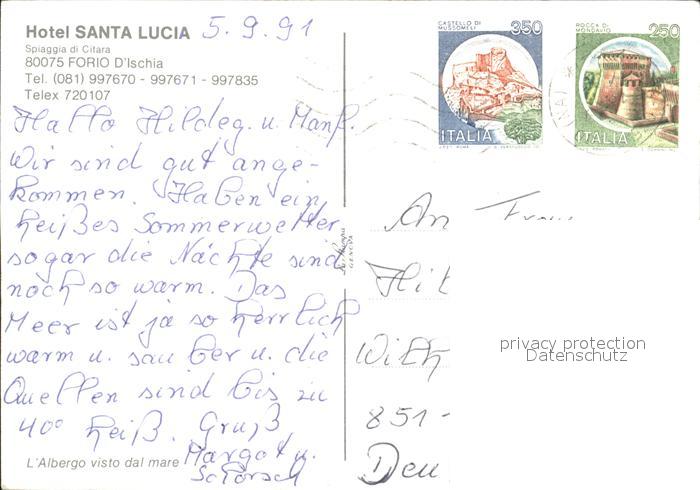 Hotel SANTA LUCIA 5.9.91
Spiaggia di Citara
80075 FORIO D'Ischia
Tel. (081) 997670 - 997671 - 997835
Telex 720107
Hallo Hildeg. u. Manf.
Wir sind gut ange-
kommen. Haben ein
heißes Sommerwetter
sogar die Nächte sind
noch so warm. Das
Meer ist ja so herrlich
warm u. sauber u. die
Quellen sind bis zu
40° heiß. Gruß
Margot u.
L'Albergo visto dal mare
GENOVA
CASTELLO DI
MUSSOMELI
350
ITALIA
ROCCA DI
MONDAVIO
250
ITALIA
An Frau
Hil
Wilh
851-
Deu
privacy protection
Datenschutz